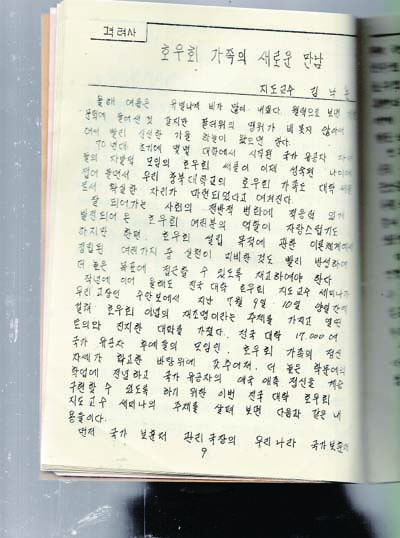 격려사
호우회 가족의 새로운 만남
지도교수 김
올해 여름은 유별나게 비가 많이 내렸다. 절기으로 보면
문턱에 들어선 것 같지만 무더위의 맹위가 비롯지 않아
어서 빨리 신선한 가을 하늘이 왔으면 한다.
70년대 초기에 몇몇 대학에서 시작된 국가 유공자 자녀
들의 자발적 모임의 호우회 써클이 이제 성숙된 나이에
접어 들면서 우리 충북대학교의 호우회 가족도 대학 써클
로서 확실한 자리가 마련되었다고 여겨진다.
잘 되어가는 사회의 전반적 변화에 적응성 있게
발전되어 온 호우회 여러분의 역할이 자랑스럽기도
하지만 한편, 호우회 설립 목적에 관한 이론체계에서
정립된 여러가지 중 실천이 미비한 것도 빨리 반성하여
더 높은 목표에 접근할 수 있도록 재고하여야 한다
작년에 이어 올해도 전국 대학 호우회 지도교수 세미나가
우리 고장인 수안보에서 지난 7월 9일 · 10일 양일간에
걸쳐 호우회 이념의 재조명이라는 주제를 가지고 열띤
토의와 진지한 대화를 가졌다. 전국 대학 17,000 여
국가 유공자 후예들의 모임인, 호우회 가족의 정신
자세가 확고한 바탕위에 갖추어져, 더 높은 학문에의
작업에 전념하고 국가 유공자의 애국 애족 정신을 계승
구현할 수 있도록 하기 위한 이번 전국 대학 호우회
지도교수 세미나의 주제를 살펴 보면 다음과 같은 내
용들이다.
먼저 국가 보훈처 관리국장의 우리나라 국가보훈
9